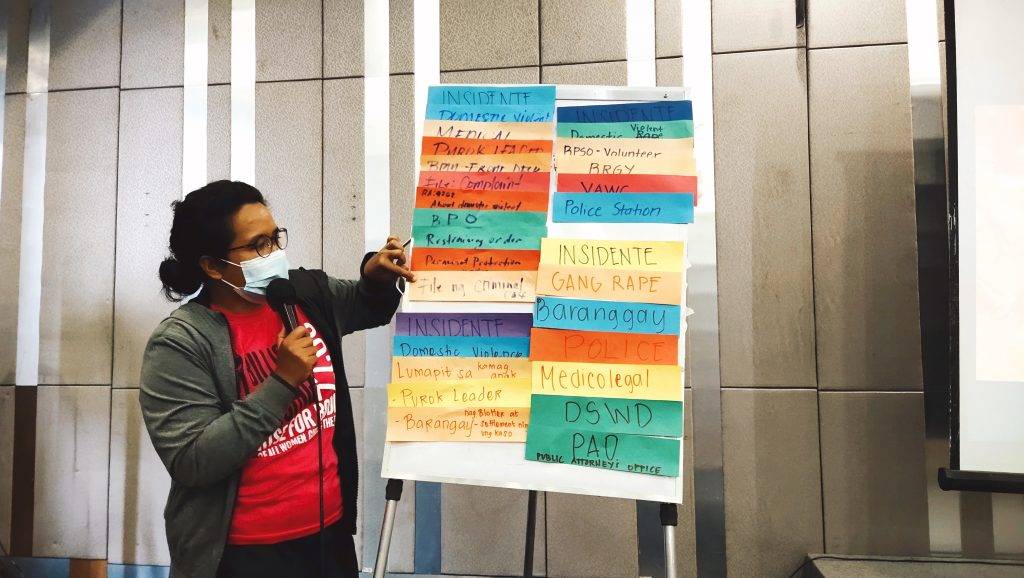 INSIDENTE
Domestic Violent
MEDICAL
PUROK LEADER
File: Complaint
RA: 9262
About domestic violent
B.P.O
Restraining order
Permanat Protection
File ng Criminal
INSIDENTE
Domestic Violence
Lumapit sa kamag anak
- PUROK Leader
- Barangay - nag Blotter at
settlement
ang KASO
INSIDENTE
Domestic Violent
RAPE
BPSO - Volunteer
BRGY
VAWC
Police Station
INSIDENTE
GANG RAPE
Baranggay
POLICE
Medicolegal
DSWD
PAO
PUBLIC ATTORNEY'S OFFICE
FOR
OF ALL WOMEN